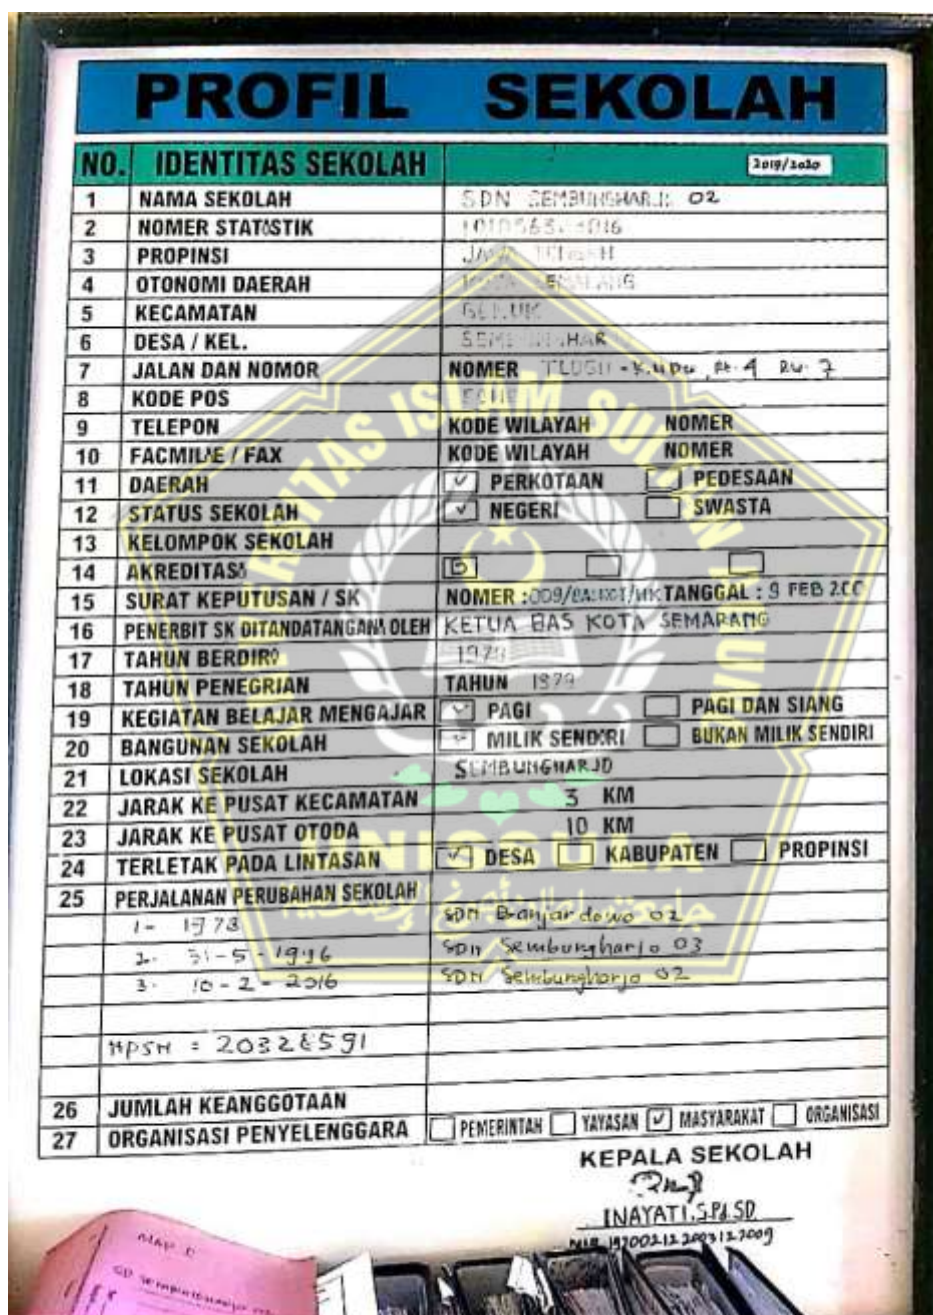 PROFIL SEKOLAH
NO. IDENTITAS SEKOLAH 2019/2020
1 NAMA SEKOLAH SDN SEMBUNGHARJO 02
2 NOMER STATISTIK
3 PROPINSI JAWA TENGAH
4 OTONOMI DAERAH KOTA SEMARANG
5 KECAMATAN GENUK
6 DESA / KEL.
7 JALAN DAN NOMOR NOMER Rt. 4 Rw. 7
8 KODE POS
9 TELEPON KODE WILAYAH NOMER
10 FACMILIE / FAX KODE WILAYAH NOMER
11 DAERAH ✓ PERKOTAAN PEDESAAN
12 STATUS SEKOLAH ✓ NEGERI SWASTA
13 KELOMPOK SEKOLAH
14 AKREDITASI B
15 SURAT KEPUTUSAN / SK NOMER : TANGGAL : 9 FEB
16 PENERBIT SK DITANDATANGANI OLEH KETUA BAS KOTA SEMARANG
17 TAHUN BERDIRI
18 TAHUN PENEGRIAN TAHUN 1979
19 KEGIATAN BELAJAR MENGAJAR ✓ PAGI PAGI DAN SIANG
20 BANGUNAN SEKOLAH ✓ MILIK SENDIRI BUKAN MILIK SENDIRI
21 LOKASI SEKOLAH SEMBUNGHARJO
22 JARAK KE PUSAT KECAMATAN 3 KM
23 JARAK KE PUSAT OTODA 10 KM
24 TERLETAK PADA LINTASAN ✓ DESA KABUPATEN PROPINSI
25 PERJALANAN PERUBAHAN SEKOLAH
1- 1978 SDN Banjardowo 02
2. 31-5-1996 SDN Sembungharjo 03
3. 10-2-2016 SDN Sembungharjo 02
NPSN = 20328591
26 JUMLAH KEANGGOTAAN
27 ORGANISASI PENYELENGGARA PEMERINTAH YAYASAN ✓ MASYARAKAT ORGANISASI
KEPALA SEKOLAH
INAYATI, S.Pd.SD
NIP. 197002122003122009
UNIVERSITAS ISLAM SULTAN AGUNG
UNISSULA
جامعة سلطان أجونج الإسلامية
MAP